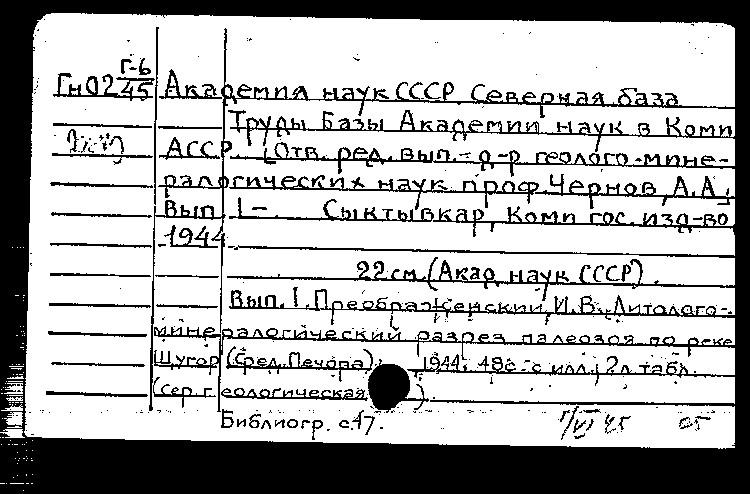 Г-6
Гн02 45 Академия наук СССР. Северная база
Труды Базы Академии наук в Коми
АССР. [Отв. ред. вып. - д-р геолого-мине-
ралогических наук проф. Чернов, А.А.]
Вып 1- Сыктывкар, Коми гос. изд-во,
1944
22 см. (Акад. наук СССР).
Вып. 1. Преображенский, И.В. Литолого-
минералогический разрез палеозоя по реке
Щугор (Сред. Печора). 1944. 48с. с илл.; 2л табл.
(сер. геологическая)
Библиогр. с.47.